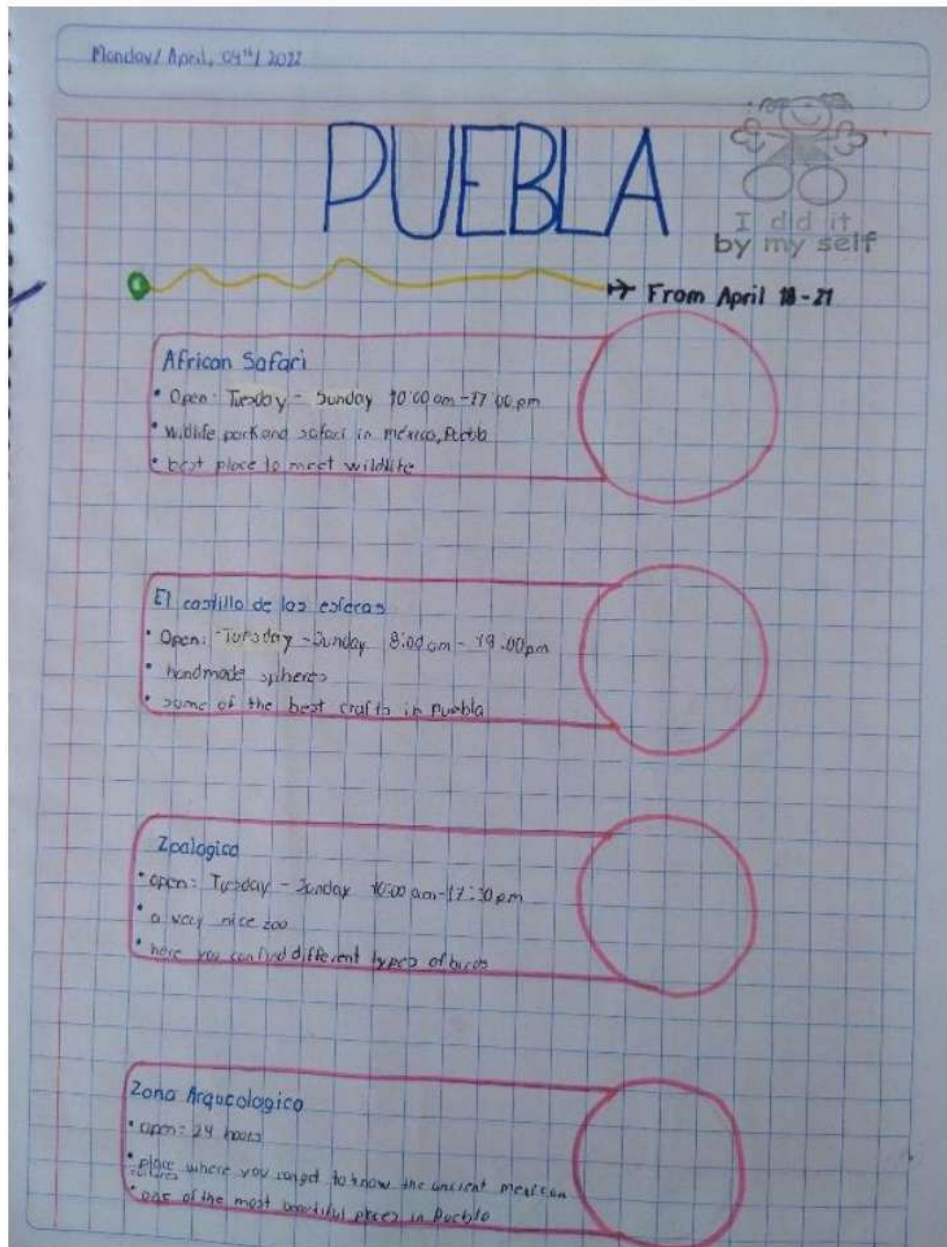 Monday/ April, 04th/ 2022
PUEBLA
I did it
by my self
From April 18-21
African Safari
• Open: Tuesday - Sunday 10:00 am-17:00 pm
• wildlife park and safari in méxico,
• best place to meet wildlife
El castillo de las esferas
• Open: Tuesday - Sunday 8:00 am - 19:00pm
• handmade spheres
• some of the best crafts in puebla
Zoologico
• open: Tuesday - Sunday 10:00 am-17:30 pm
• a very nice zoo
• here you can find different types of birds
Zona Arqueologica
• open: 24 hours
• place where you can get to know the ancient mexican
cultures
• one of the most beautiful places in Puebla